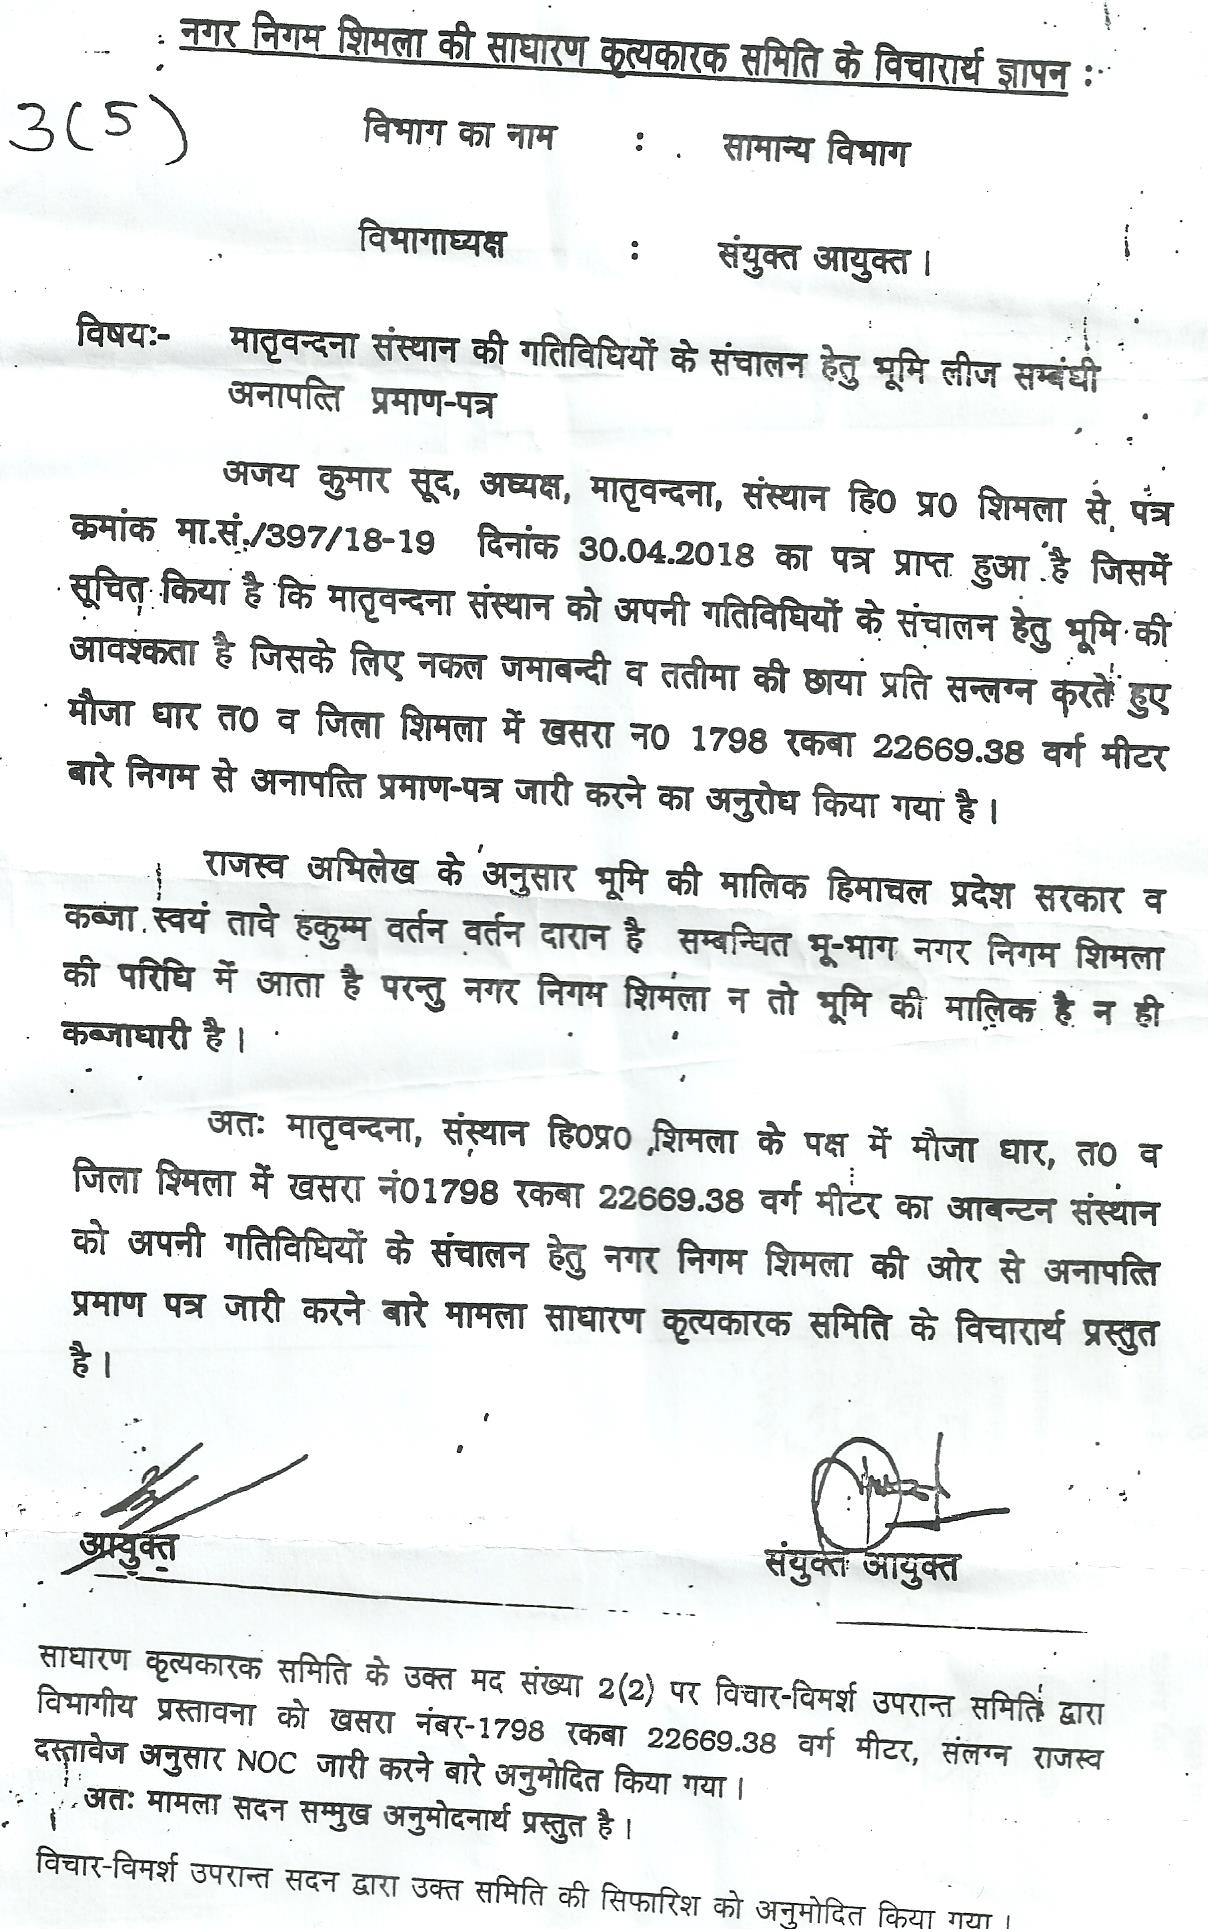 : नगर निगम शिमला की साधारण कृत्यकारक समिति के विचारार्थ ज्ञापन :
3(5)
विभाग का नाम : सामान्य विभाग
विभागाध्यक्ष : संयुक्त आयुक्त ।
विषयः- मातृवन्दना संस्थान की गतिविधियों के संचालन हेतु भूमि लीज सम्बंधी
अनापत्ति प्रमाण-पत्र
अजय कुमार सूद, अध्यक्ष, मातृवन्दना, संस्थान हि0 प्र0 शिमला से पत्र
क्रमांक मा.सं./397/18-19 दिनांक 30.04.2018 का पत्र प्राप्त हुआ है जिसमें
सूचित किया है कि मातृवन्दना संस्थान को अपनी गतिविधियों के संचालन हेतु भूमि की
आवश्कता है जिसके लिए नकल जमाबन्दी व ततीमा की छाया प्रति सन्लग्न करते हुए
मौजा धार त0 व जिला शिमला में खसरा न0 1798 रकबा 22669.38 वर्ग मीटर
बारे निगम से अनापत्ति प्रमाण-पत्र जारी करने का अनुरोध किया गया है ।
राजस्व अभिलेख के अनुसार भूमि की मालिक हिमाचल प्रदेश सरकार व
कब्जा स्वयं तावे हकुम्म वर्तन वर्तन दारान है सम्बन्धित भू-भाग नगर निगम शिमला
की परिधि में आता है परन्तु नगर निगम शिमला न तो भूमि की मालिक है न ही
कब्जाधारी है ।
अतः मातृवन्दना, संस्थान हि0प्र0 शिमला के पक्ष में मौजा धार, त0 व
जिला श्मिला में खसरा नं01798 रकबा 22669.38 वर्ग मीटर का आबन्टन संस्थान
को अपनी गतिविधियों के संचालन हेतु नगर निगम शिमला की ओर से अनापत्ति
प्रमाण पत्र जारी करने बारे मामला साधारण कृत्यकारक समिति के विचारार्थ प्रस्तुत
है ।
आयुक्त संयुक्त आयुक्त
साधारण कृत्यकारक समिति के उक्त मद संख्या 2(2) पर विचार-विमर्श उपरान्त समिति द्वारा
विभागीय प्रस्तावना को खसरा नंबर-1798 रकबा 22669.38 वर्ग मीटर, संलग्न राजस्व
दस्तावेज अनुसार NOC जारी करने बारे अनुमोदित किया गया ।
अतः मामला सदन सम्मुख अनुमोदनार्थ प्रस्तुत है ।
विचार-विमर्श उपरान्त सदन द्वारा उक्त समिति की सिफारिश को अनुमोदित किया गया ।